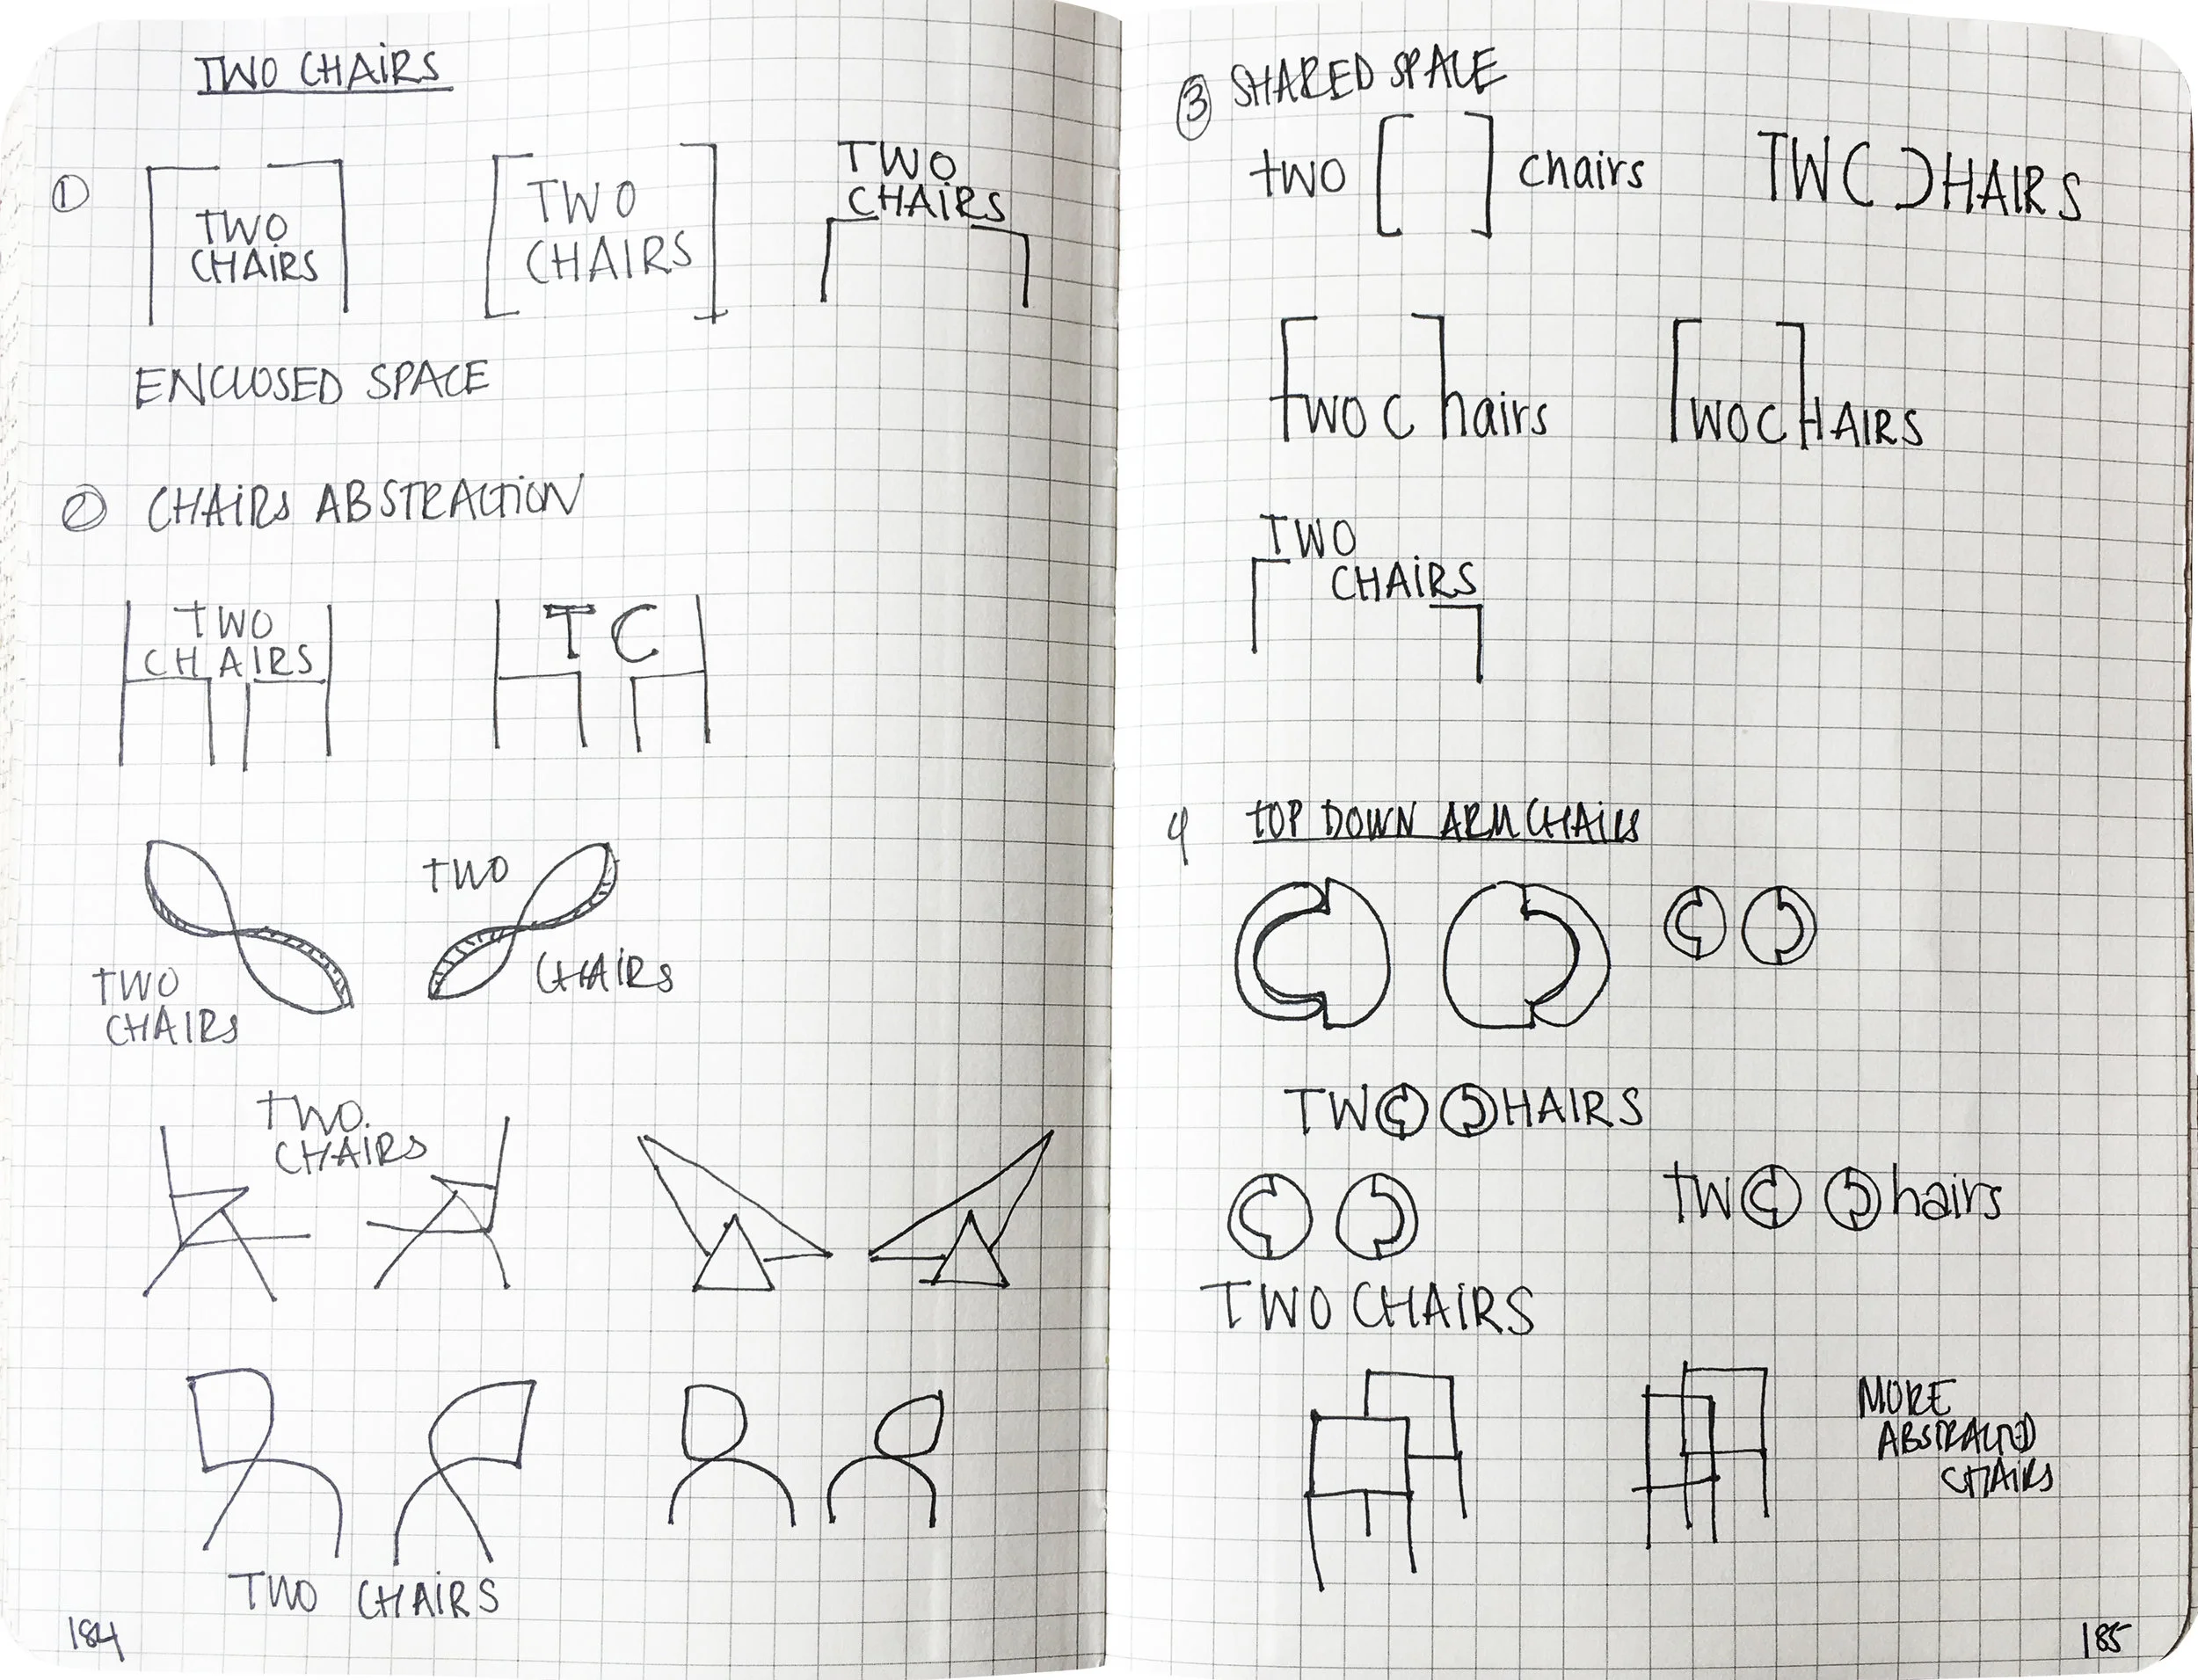 TWO CHAIRS
1
TWO
CHAIRS
TWO
CHAIRS
TWO
CHAIRS
ENCLOSED SPACE
2 CHAIRS ABSTRACTION
TWO
CHAIRS
T C
TWO
CHAIRS
TWO
CHAIRS
TWO
CHAIRS
TWO CHAIRS
184
3 SHARED SPACE
two [ ] chairs
TWC ƆHAIRS
twoc hairs
TWOCHAIRS
TWO
CHAIRS
4 TOP DOWN ARMCHAIRS
TWO CHAIRS
TWO Chairs
TWO CHAIRS
MORE
ABSTRACTED
CHAIRS
185